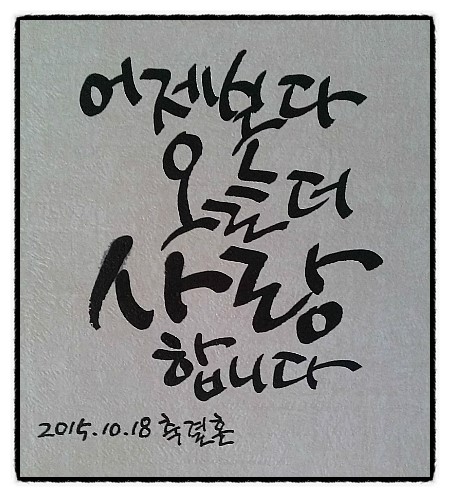 어제보다
오늘더
사랑
합니다
2015.10.18 축결혼